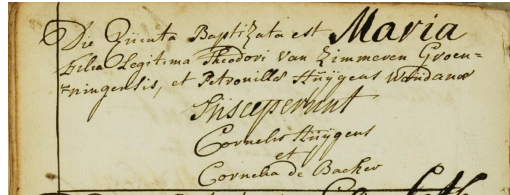 Die Quinta Baptizata est Maria
Filia Legitima Theodori Van Zimmeren Groen-
ningensis, et Petronillæ Huÿgens
Susceperunt
Cornelis Huÿgens
et
Cornelia de Backer